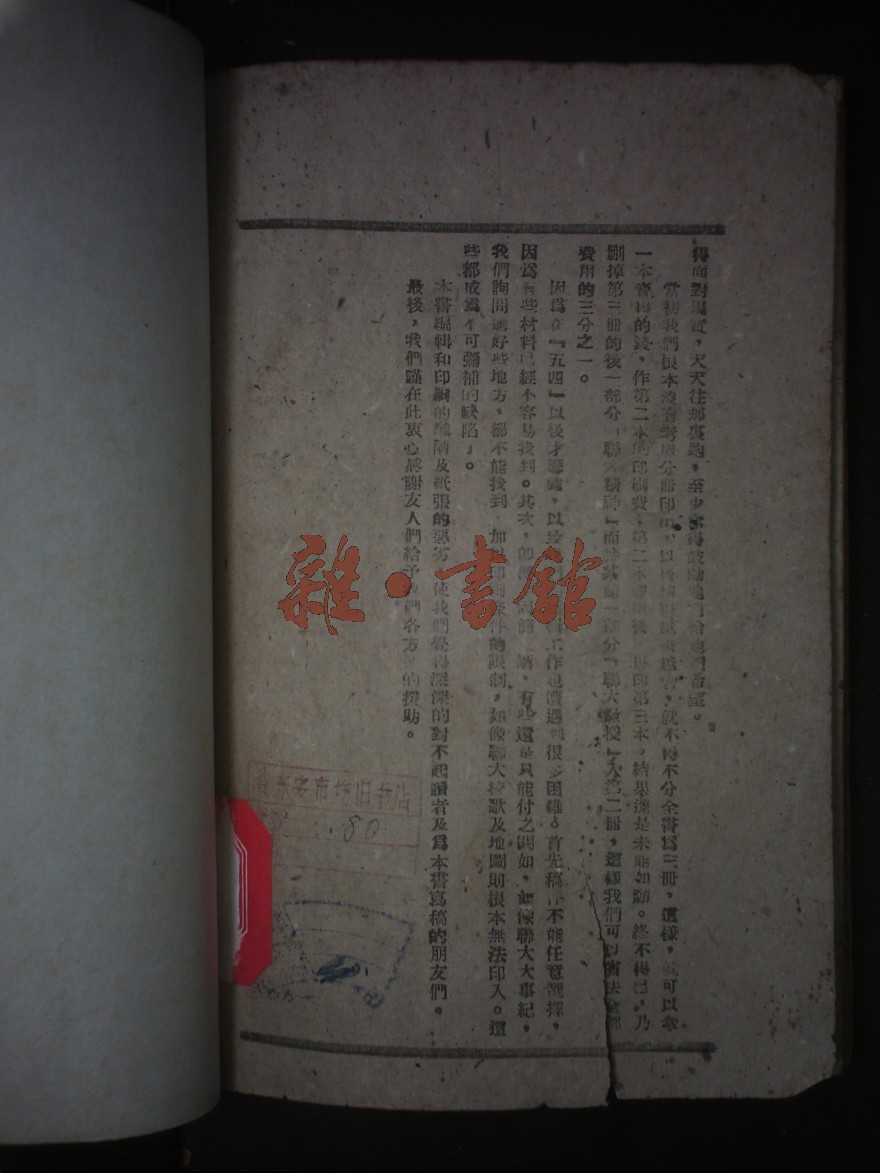 得面對現實，天天往那裏跑，至少
當初我們根本沒有考慮分冊印出，以後，就不得不分全書爲三冊，這樣，就可以拿
一本賣得的錢，作第二本的印刷費，第二本賣出後，再印第三本。結果還是未能如願。終不得已，乃
刪掉第三冊的後一部分「聯大精神」而將其前一部分「聯大教授」入第二冊，這樣我們可以省去全部
費用的三分之一。
因爲在『五四』以後才，以工作也遭遇到很多困難。首先稿件不能任意選擇，
因爲有些材料已經不容易找到。其次，有些還是只能付之闕如，如像聯大大事紀，
我們詢問過好些地方，都不能找到，加以印刷條件的限制，如像聯大校歌及地圖則根本無法印入。這
些都成爲不可彌補的缺陷」。
本書編輯和印刷的及紙張的惡劣，使我們覺得深深的對不起讀者及爲本書寫稿的朋友們。
最後，我們謹在此衷心感謝友人們給予我們各方面的援助。
雜·書館
东安市场旧书店
.80